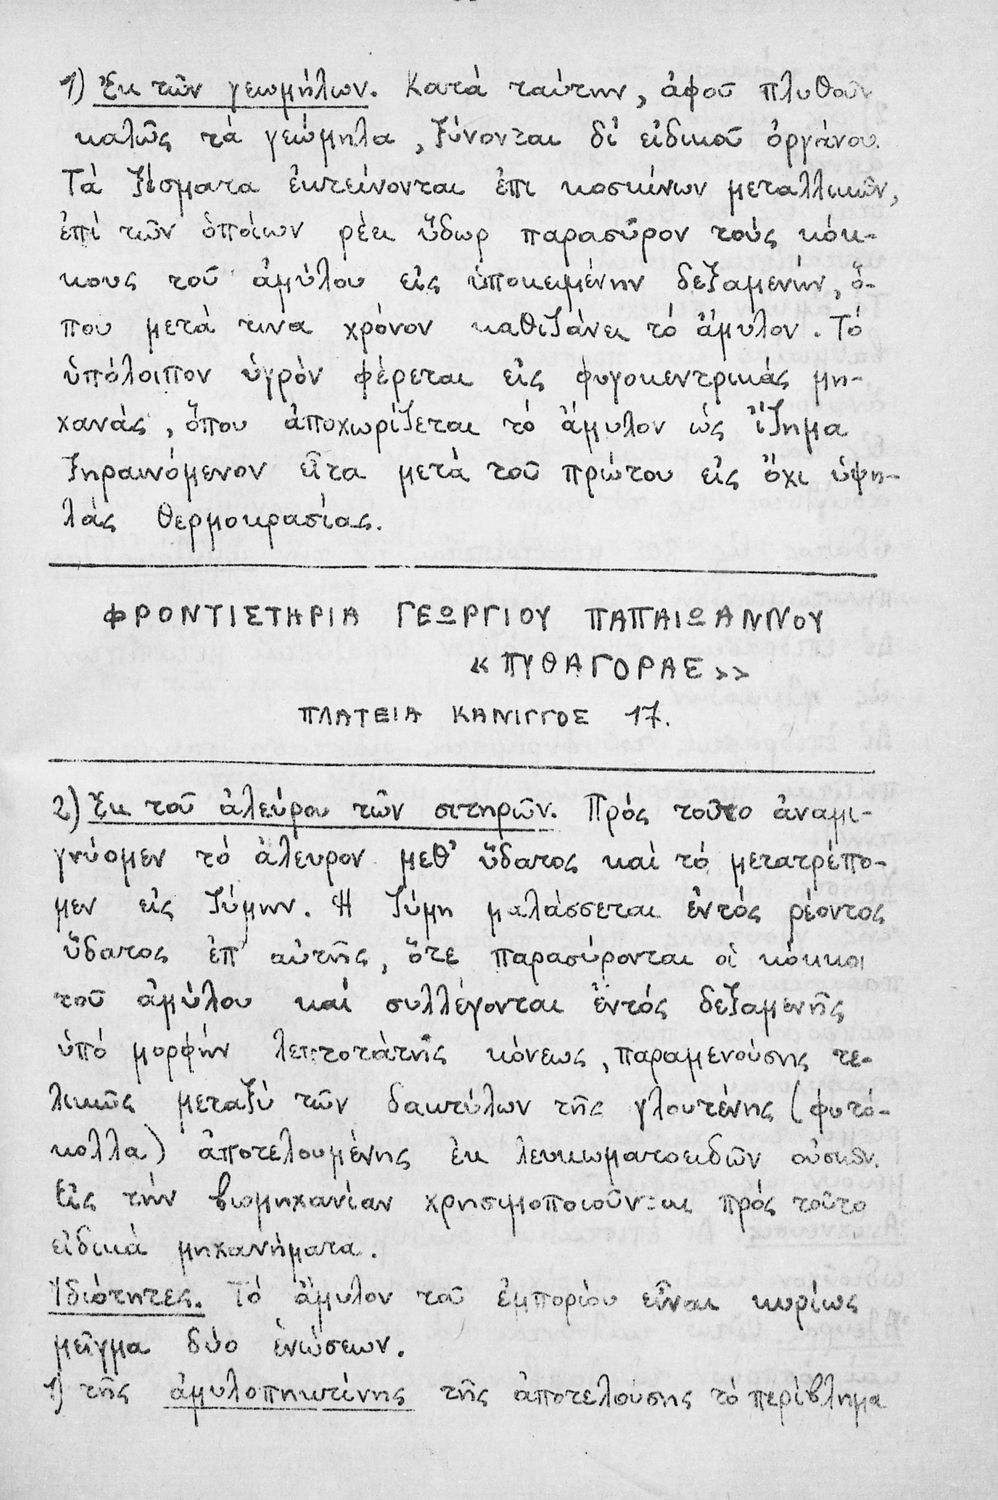 1) Ἐκ τῶν γεωμήλων. Κατά ταύτην, ἀφοῦ πλυθοῦν
καλῶς τά γεώμηλα, ξύνονται δι' εἰδικοῦ ὀργάνου.
Τά ξέσματα ἐκτείνονται ἐπι κοσκίνων μεταλλικῶν,
ἐπί τῶν ὁποίων ρέει ὕδωρ παρασῦρον τούς κόκ-
κους τοῦ ἀμύλου εἰς ὑποκειμένην δεξαμενήν, ὅ-
που μετά τινα χρόνον καθιζάνει τό ἄμυλον. Τό
ὑπόλοιπον ὑγρόν φέρεται εἰς φυγοκεντρικάς μη-
χανάς, ὅπου ἀποχωρίζεται τό ἄμυλον ὡς ἵζημα
ξηραινόμενον εἶτα μετά τοῦ πρώτου εἰς ὄχι ὑψη-
λάς θερμοκρασίας.
ΦΡΟΝΤΙΣΤΗΡΙΑ ΓΕΩΡΓΙΟΥ ΠΑΠΑΙΩΑΝΝΟΥ
«ΠΥΘΑΓΟΡΑΣ»
ΠΛΑΤΕΙΑ ΚΑΝΙΓΓΟΣ 17.
2) Ἐκ τοῦ ἀλεύρου τῶν σιτηρῶν. Πρός τοῦτο ἀναμι-
γνύομεν τό ἄλευρον μεθ' ὕδατος καί τό μετατρέπο-
μεν εἰς ζύμην. Ἡ ζύμη μαλάσσεται ἐντός ρέοντος
ὕδατος ἐπ' αὐτῆς, ὅτε παρασύρονται οἱ κόκκοι
τοῦ ἀμύλου καί συλλέγονται ἐντός δεξαμενῆς
ὑπό μορφήν λεπτοτάτης κόνεως, παραμενούσης τε-
λικῶς μεταξύ τῶν δακτύλων τῆς γλουτένης (φυτό-
κολλα) ἀποτελουμένης ἐκ λευκωματοειδῶν οὐσιῶν.
Εἰς τήν βιομηχανίαν χρησιμοποιοῦνται πρός τοῦτο
εἰδικά μηχανήματα.
Ἰδιότητες. Τό ἄμυλον τοῦ ἐμπορίου εἶναι κυρίως
μεῖγμα δύο ἑνώσεων.
1) τῆς ἀμυλοπηκτίνης τῆς ἀποτελούσης τό περίβλημα